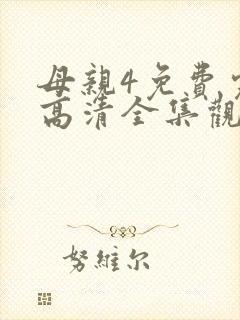 母親4免費
高清全集觀
努維尔